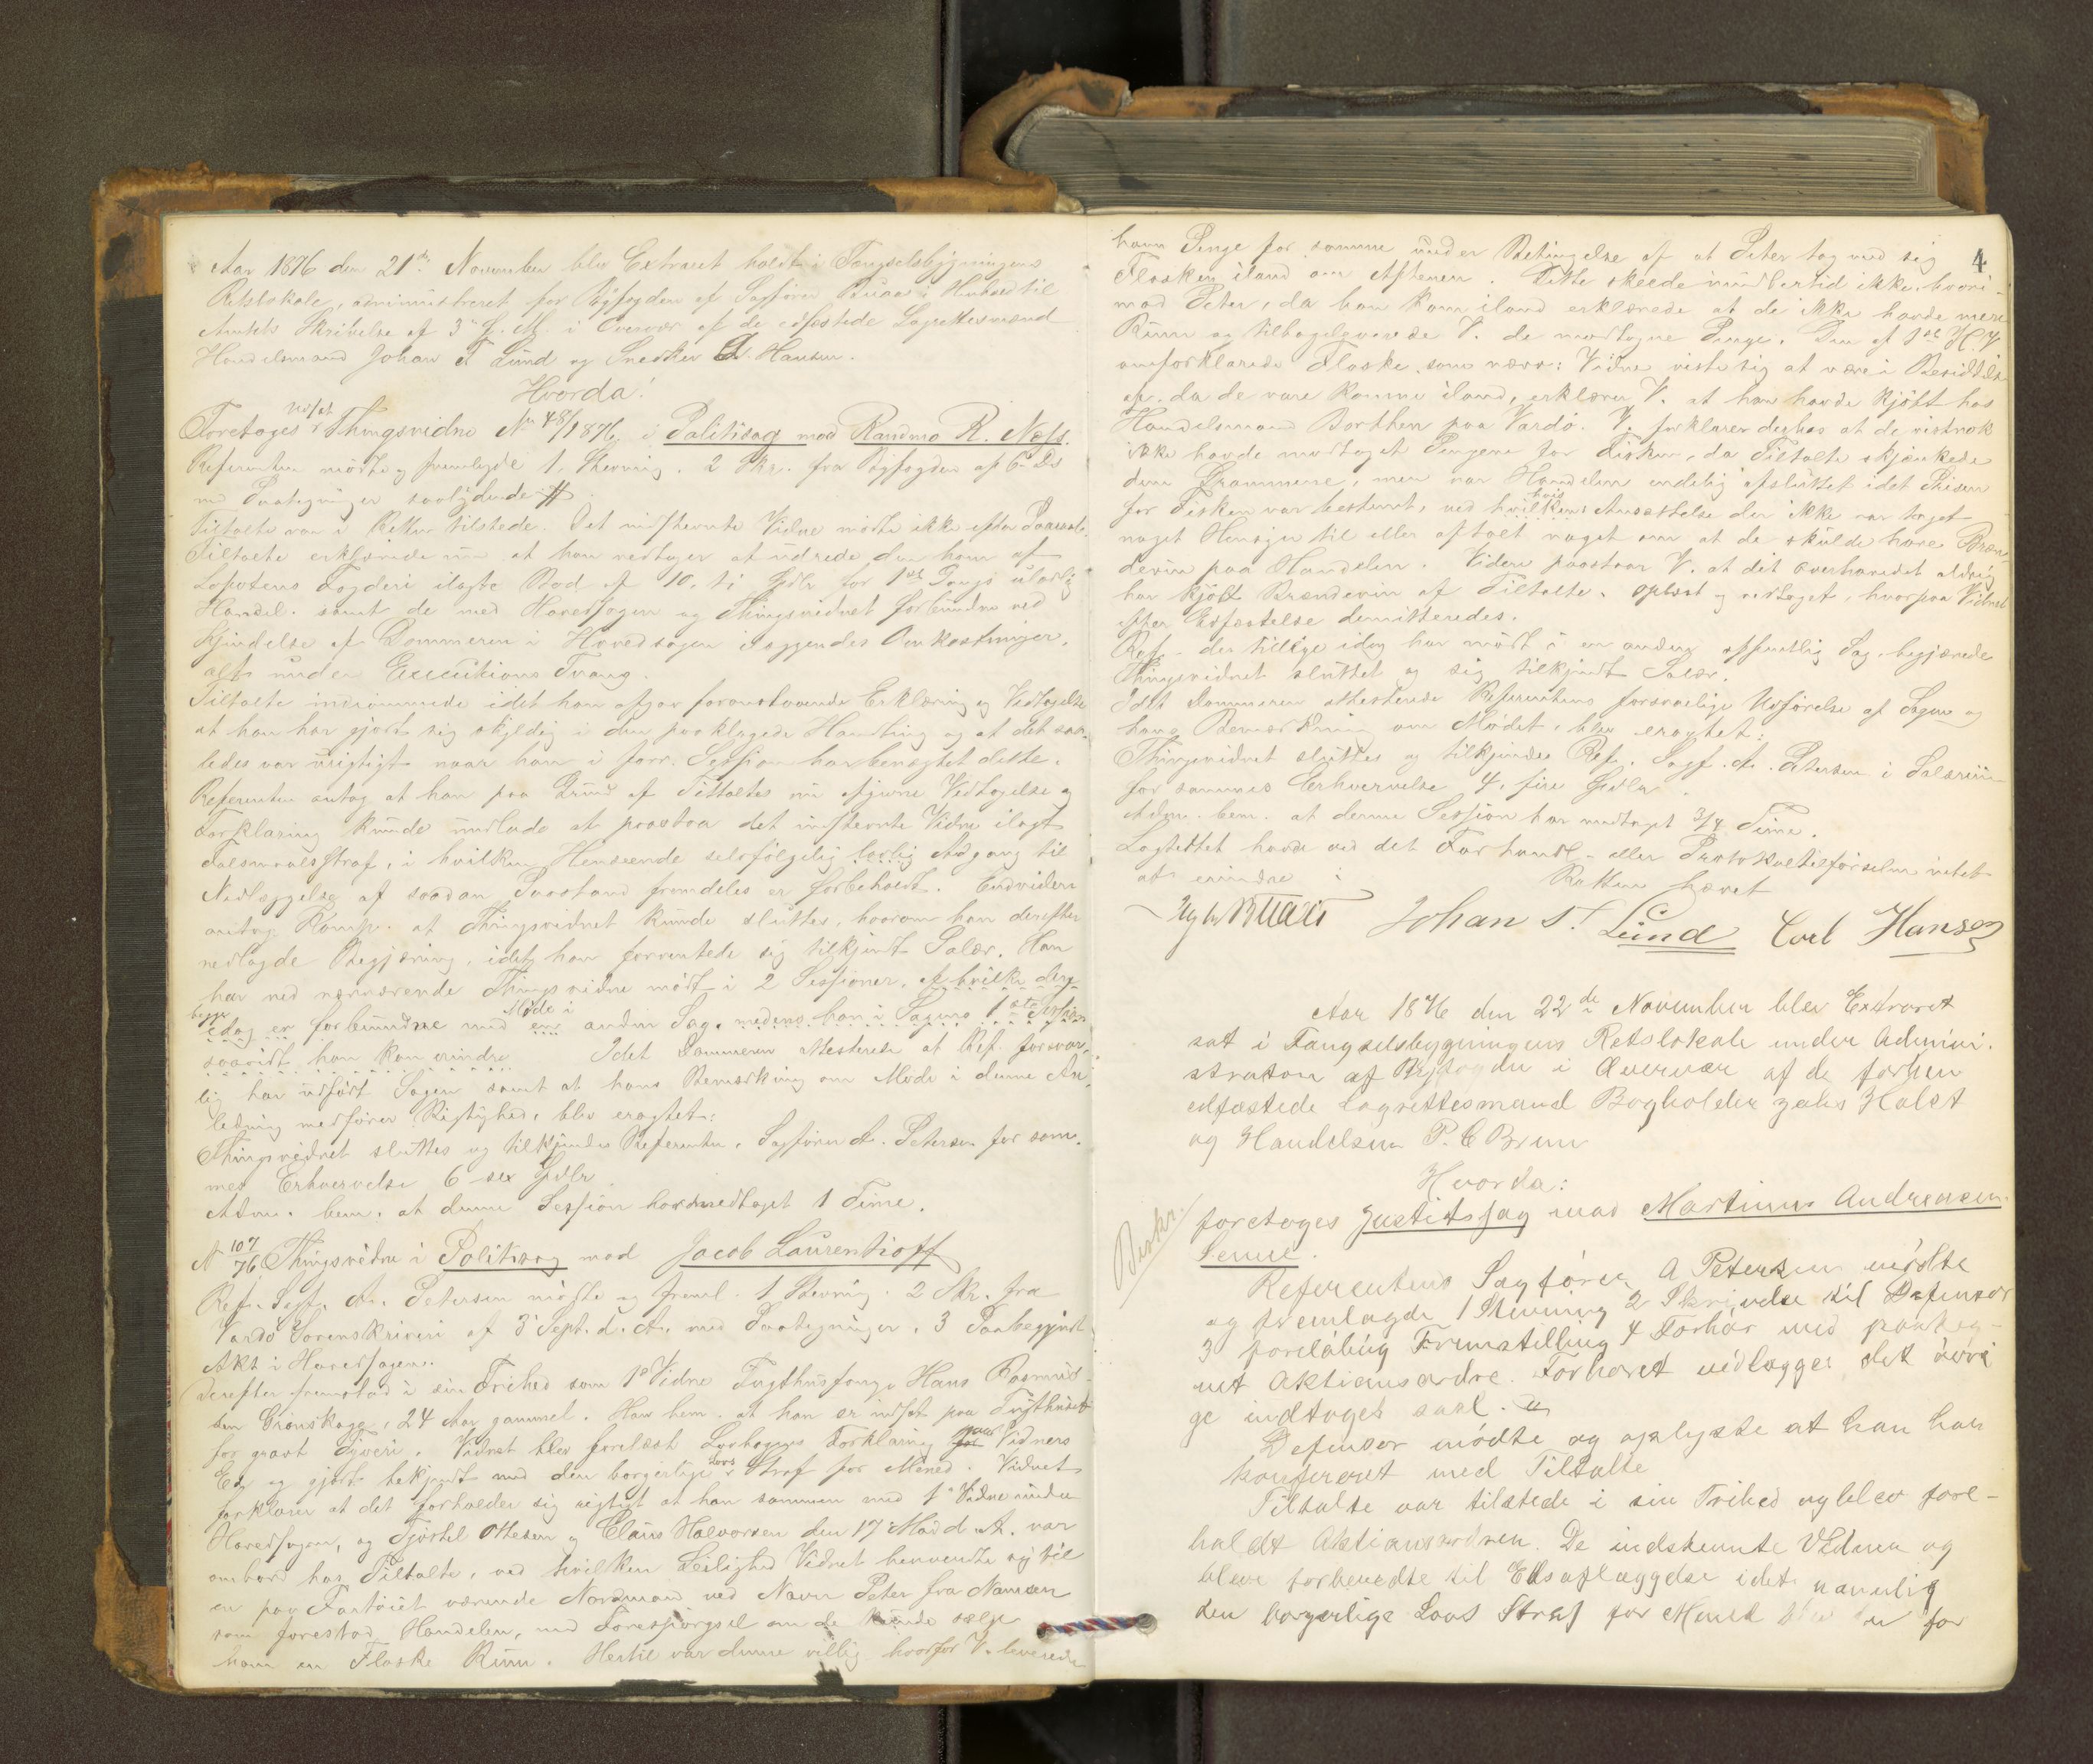 Aar 1876 den 21de November blev Extraret holdt i Fængselsbygningens
Retslokale, administreret for Byfogden af Sagfører Buaas i Henhold til
Amtets Skrivelse af 3 d. M. i Overvær af de edfæstede Lagrettesmænd
Handelsmand Johan T Lund og Snedker C. Hansen.
Hvorda!
Foretoges Thingsvidne No 48/1876 i Politisag mod Rasmus R. Næss.
Referenten mødte og fremlagde 1, Stevning. 2 Skr. fra Byfogden af 6 Ds
med Paategninger saalydende #
Tiltalte var i Retten tilstede. Det indstevnte Vidne mødte ikke efter Paaraab.
Tiltalte erklærede nu at han vedtager at udrede den ham af
Lofotens Fogderi ilagte Bod af 10, ti Spdlr for 1ste Gangs ulovlig
Handel. samt de med Hovedsagen og Thingsvidnet forbundne ved
Kjendelse af Dommeren i Hovedsagen Omkostninger,
alt under Executions Tvang.
Tiltalte indrømmede idet han afgav foranstaaende Erklæring og Vedtagelse
at han har gjort sig skyldig i den paaklagede Handling og at det saa-
ledes var urigtigt naar han i forr. Session har benægtet dette.
Referenten antog at han paa Grund af Tiltaltes nu afgivne Vedtagelse og
Forklaring kunde undlade at paastaa det indstevnte Vidne ilagt
Falsmaalsstraf, i hvilken Henseende selvfølgelig lovlig Adgang til
Nedlæggelse af saadan Paastand fremdeles er forbeholdt. Endvidere
antog Komp. at Thingsvidnet kunde sluttes, hvorom han derefter
nedlagde Begjæring, idet han forventede sig tilkjendt Salær. Han
har ved nærværende Thingsvidne mødt i 2 Sessioner, af hvilke
begge
Møde i
idag er forbundne med en anden Sag, medens han i Sagens 1ste Session
saavidt han kan erindre Idet Dommeren attesterede at Ref. forsvar-
lig har udført Sagen samt at hans Bemærkning om Møde i denne An-
ledning medfører Rigtighed, blev eragtet:
Thingsvidnet sluttes og tilkjendes Referenten, Sagfører A. Petersen for sam-
mes Erhvervelse 6 sex Spdlr.
Adm. bem. at denne Session har medtaget 1 Time.
N 107/76 Thingsvidne i Politisag mod Jacob Laurentioff
Ref. Sagf. A. Petersen mødte og freml. 1 Stevning. 2 Skr. fra
Vardø Sorenskriveri af 3 Sept. d. A. med Paategninger. 3 Paabegyndt
Akt i Hovedsagen.
Derefter fremstod i sin Frihed som 1o Vidne Tugthusfange Hans Rasmus-
sen Grønskage, 24 Aar gammel. Han bem. at han er indsat paa Tugthuset
for grovt Tyveri. Vidnet blev forelæst Lovbogens Forklaring over Vidners
Ed og gjort bekjendt med den borgerlige Lovs Straf for Mened. Vidnet
forklarer at det forholder sig rigtigt at han sammen med 1o Vidne under
Hovedsagen, og Tjøstel Ottesen og Claus Halvorsen den 17 Mai d. A. var
ombord hos Tiltalte, ved hvilken Leilighed Vidnet henvendte sig til
en paa Fartøiet værende Nordmand ved Navn Peter fra Namsen
som forestod Handelen, med Forespørgsel om de kunde sælge
ham en Flaske Rum. Hertil var denne villig hvorfor V. leverede
4
ham Penge for samme under Betingelse af at Peter tog med sig
Flasken iland om Aftenen. Dette skeede imidlertid ikke, hvori-
mod Peter, da han kom iland erklærede at de ikke havde mere
Rum og tilbagegavede V. de modtagne Penge. Den af 1ste H. V.
omforklarede Flaske, som nærv: Vidne viste sig at være i Besiddelse
af, da de vare komne iland, erklærer V. at han havde kjøbt hos
Handelsmand Borthen paa Vardø. V. forklarer derhos at de vistnok
ikke havde modtaget Pengene for Fisken, da Tiltalte skjænkede
dem Drammene, men var Handelen endelig afsluttet idet Prisen
hvis
for Fisken var bestemt, ved hvilkens Ansættelse der ikke var taget
noget Hensyn til eller aftalt noget om at de skulde have Bræn-
devin paa Handelen. Videre paastaar V. at det overhovedet aldrig
har kjøbt Brændevin af Tiltalte. Oplæst og vedtaget, hvorpaa Vidnet
efter Edfæstelse demitteredes.
Ref. der tillige idag har mødt i en anden offentlig Sag, begjærede
Thingsvidnet sluttet og sig tilkjendt Salær.
Idet Dommeren attesterede Referentens forsvarlige Udførelse af Sagen og
hans Bemærkning om Mødet, blev eragtet:
Thingsvidnet sluttes og tilkjendes Ref. Sagf. A. Petersen i Salarium
for sammes Erhvervelse 4, fire Spdlr.
Adm. bem. at denne Session har medtaget 3/4 Time.
Lagrettet havde ved det Forhandl. eller Protokoltilførselen intet
at erindre Retten hævet
Buaas Johan T. Lund Carl Hansen
Aar 1876 den 22de November blev Extraret
sat i Fængselsbygningens Retslokale under Admini-
stration af Byfogden i Overvær af de forhen
edfæstede Lagrettesmænd Bogholder Holst
og Handelsm P. C Brun
Hvorda:
Beskr.
foretoges Justitssag mod Martinus Andreasen
Senne.
Referentens Sagfører A Petersen mødte
og fremlagde 1 Stevning 2 Skrivelse til Defensor
3 foreløbig Fremstilling 4 Forhør med paateg-
net Aktionsordre. Forhøret vedlægges det øvri
ge indtages saal.
Defensor mødte og oplyste at han har
konfereret med Tiltalte
Tiltalte var tilstede i sin Frihed og blev fore-
holdt Aktionsordren. De indstevnte Vidner og
bleve forberedte til Edsaflæggelse idet navnlig
den borgerlige Lovs Straf for Mened blev for